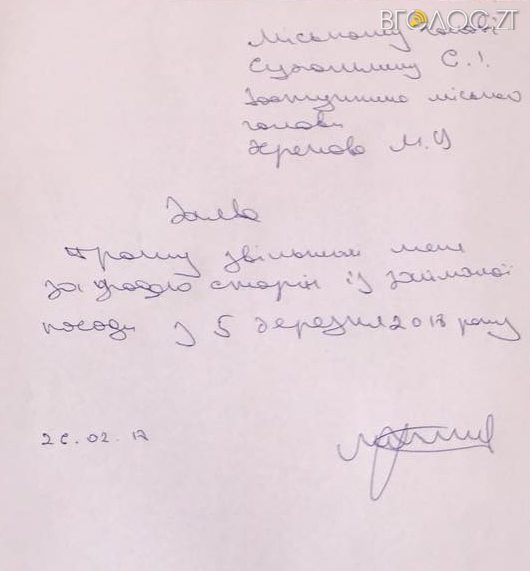 ВГОЛОС.ZT
Міському голові
Сухомлину С.І.
Заступника міського
голови
Хренова М.У
Заява
Прошу звільнити мене
за угодою сторін із займаної
посади з 5 березня 2018 року